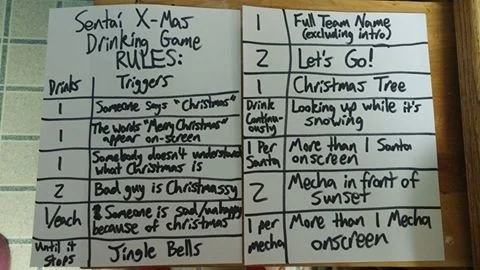 Sentai X-Mas
Drinking Game
RULES:
Drinks Triggers
1 Someone says "Christmas"
1 The words "Merry Christmas"
appear on-screen
1 Somebody doesn't understand
what Christmas is
2 Bad guy is Christmassy
1/each Someone is sad/unhappy
because of christmas
Until it
stops Jingle Bells
1 Full Team Name
(excluding intro)
2 Let's Go!
1 Christmas Tree
Drink
Continu-
ously Looking up while it's
snowing
1 Per
Santa More than 1 Santa
onscreen
2 Mecha in front of
sunset
1 per
mecha More than 1 Mecha
onscreen